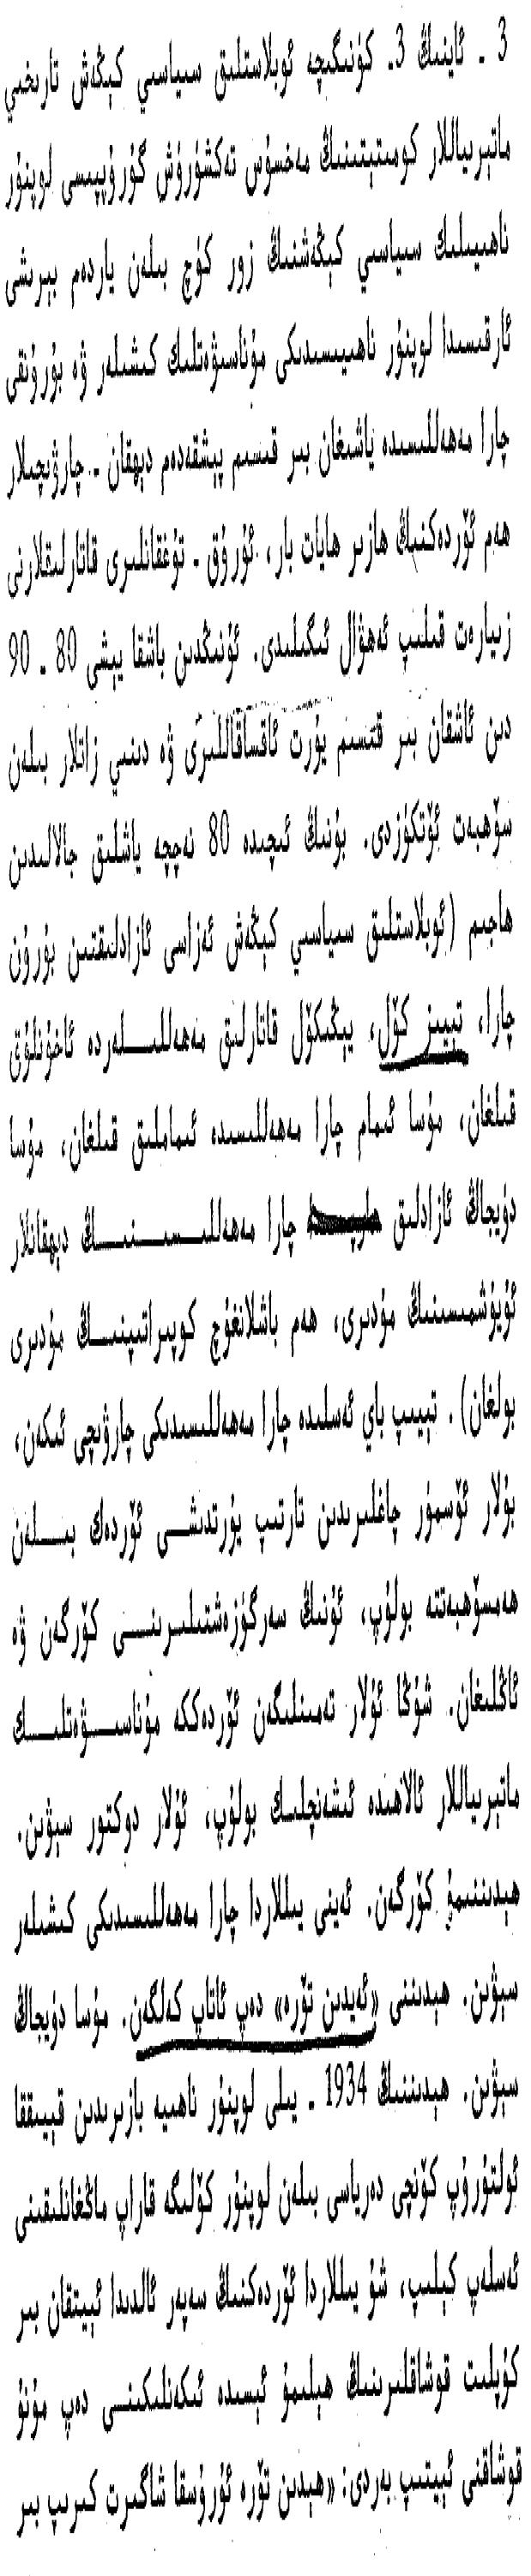 3 ـ ئاينىڭ 3ـ كۈنىگىچە ئوبلاستلىق سىياسىي كېڭەش تارىخىي
ماتېرىياللار كومىتېتىنىڭ مەخسۇس تەكشۈرۈش گۇرۇپپىسى لوپنۇر
ناھىيىلىك سىياسىي كېڭەشنىڭ زور كۈچ بىلەن ياردەم بېرىشى
ئارقىسىدا لوپنۇر ناھىيىسىدىكى مۇناسىۋەتلىك كىشىلەر ۋە بۇرۇنقى
چارا مەھەللىسىدە ياشىغان بىر قىسىم پېشقەدەم دېھقان ـ چارۋىچىلار
ھەم ئۆردەكنىڭ ھازىر ھايات بار، ئۇرۇق ـ تۇغقانلىرى قاتارلىقلارنى
زىيارەت قىلىپ ئەھۋال ئىگىلىدى. ئۇنىڭدىن باشقا يېشى 80 ـ 90
دىن ئاشقان بىر قىسىم يۇرت ئاقساقاللىرى ۋە دىنىي زاتلار بىلەن
سۆھبەت ئۆتكۈزدى. بۇنىڭ ئىچىدە 80 نەچچە ياشلىق جالالىدىن
ھاجىم (ئوبلاستلىق سىياسىي كېڭەش ئەزاسى ئازادلىقتىن بۇرۇن
چارا، تېيىز كۆل، يېڭىكۆل قاتارلىق مەھەللىــــلەردە ئاخۇنلۇق
قىلغان، مۇسا ئىمام چارا مەھەللىسىدە ئىماملىق قىلغان، مۇسا
دۇيجاڭ ئازادلىق چارا مەھەللىــســـىـنىــــڭ دېھقانلار
ئۇيۇشمىسىنىڭ مۇدىرى، ھەم باشلانغۇچ كوپىراتىپنىــــڭ مۇدىرى
بولغان). تېيىپ باي ئەسلىدە چارا مەھەللىسىدىكى چارۋىچى ئىكەن،
بۇلار ئۆسمۈر چاغلىرىدىن تارتىپ يۇرتدىشــى ئۆردەك بىـــلەن
ھەمسۆھبەتتە بولۇپ، ئۇنىڭ سەرگۈزەشتىلىـرىنــــى كۆرگەن ۋە
ئاڭلىغان. شۇڭا ئۇلار تەمىنلىگەن ئۆردەككە مۇناســـىۋەتلىــــك
ماتېرىياللار ئالاھىدە ئىشەنچلىـك بولۇپ، ئۇلار دوكتور سېۋىن.
ھېدىننىمۇ كۆرگەن. ئەينى يىللاردا چارا مەھەللىسىدىكى كىشىلەر
سېۋىن. ھېدىننى «ئەيدىن تۆرە» دەپ ئاتاپ كەلگەن. مۇسا دۇيجاڭ
سېۋىن. ھېدىننىڭ 1934 ـ يىلى لوپنۇر ناھىيە بازىرىدىن قېيىققا
ئولتۇرۇپ كۆنچى دەرياسى بىلەن لوپنۇر كۆلىگە قاراپ ماڭغانلىقىنى
ئەسلەپ كېلىپ، شۇ يىللاردا ئۆردەكنىڭ سەپەر ئالدىدا ئېيتقان بىر
كۇپلېت قوشاقلىرىنىڭ ھېلىمۇ ئېسىدە ئىكەنلىكىنــى دەپ مۇنۇ
قوشاقنى ئېيتىپ بەردى: «ھېدىن تۆرە ئۇرۇسقا شاگىرت كىرىپ بىر